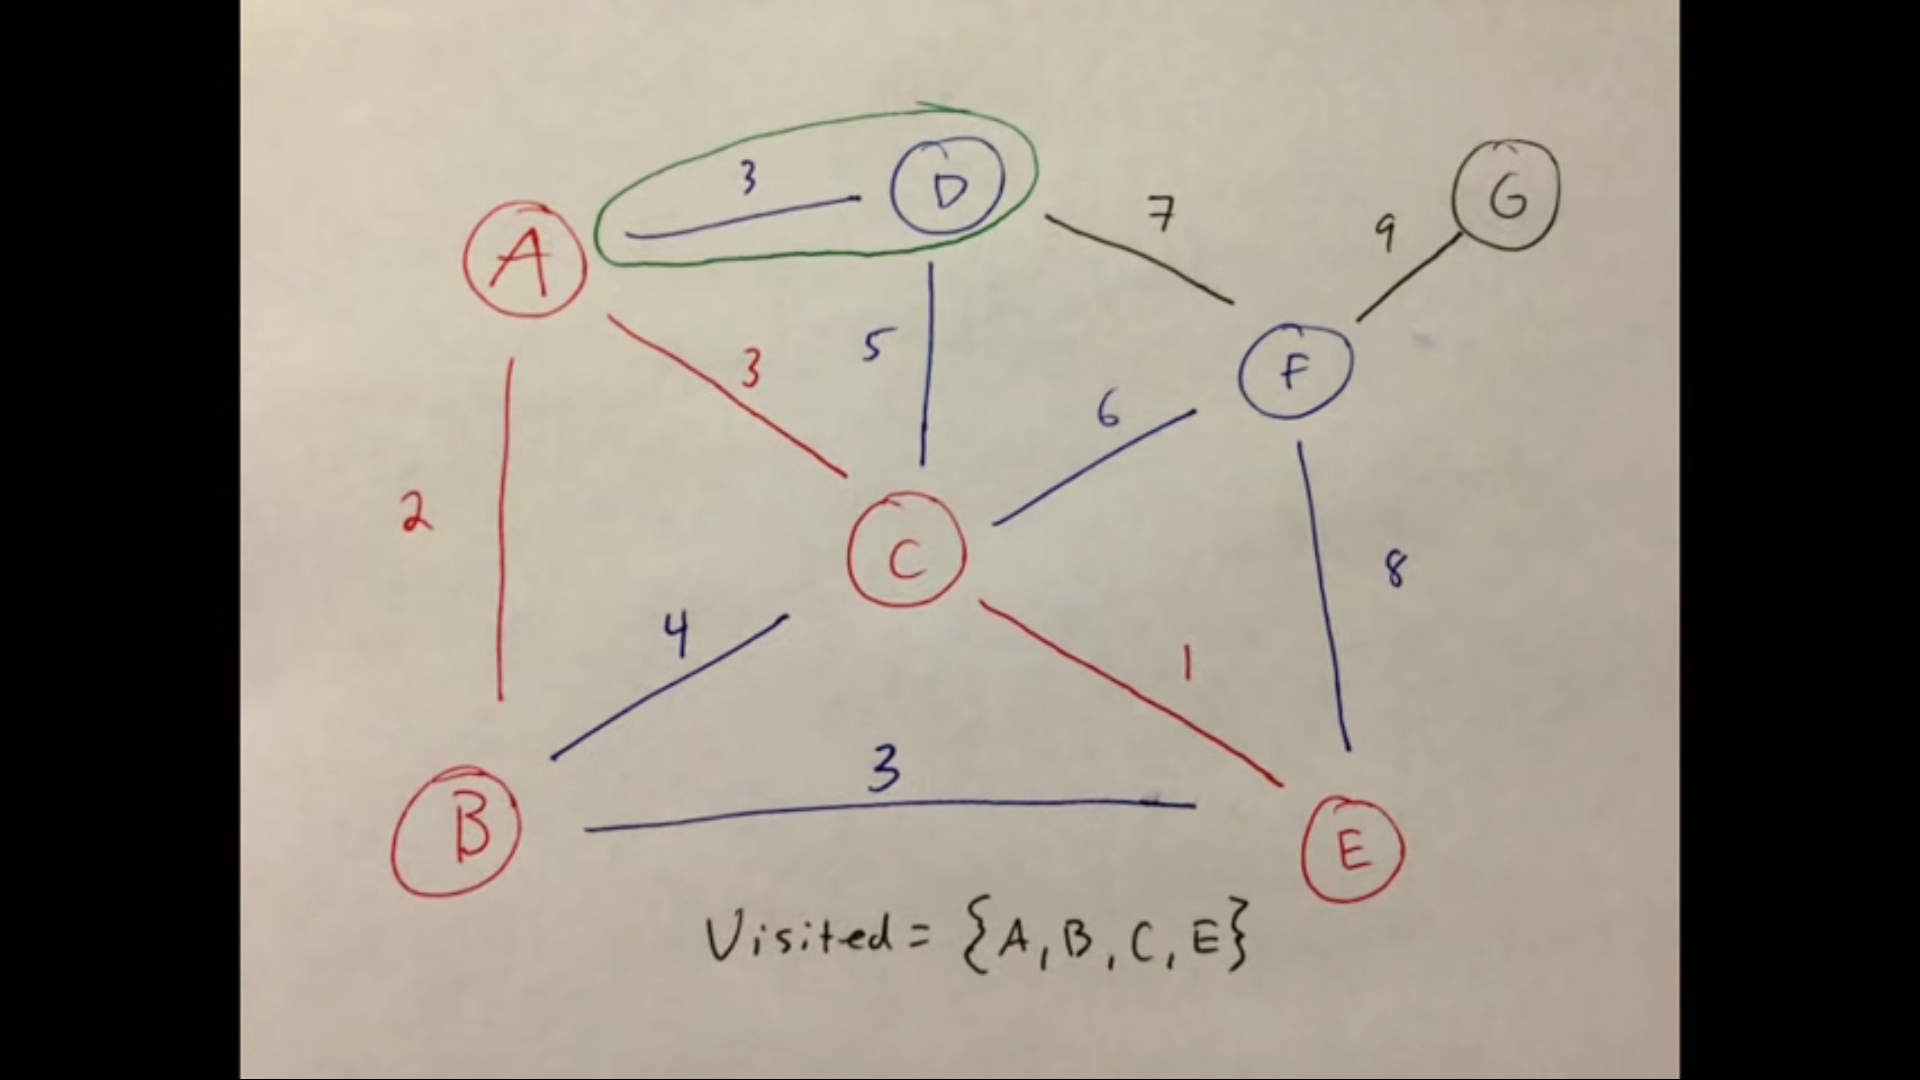 3
D
G
A
7
9
5
3
F
6
2
C
8
4
1
3
B
E
Visited = {A, B, C, E}